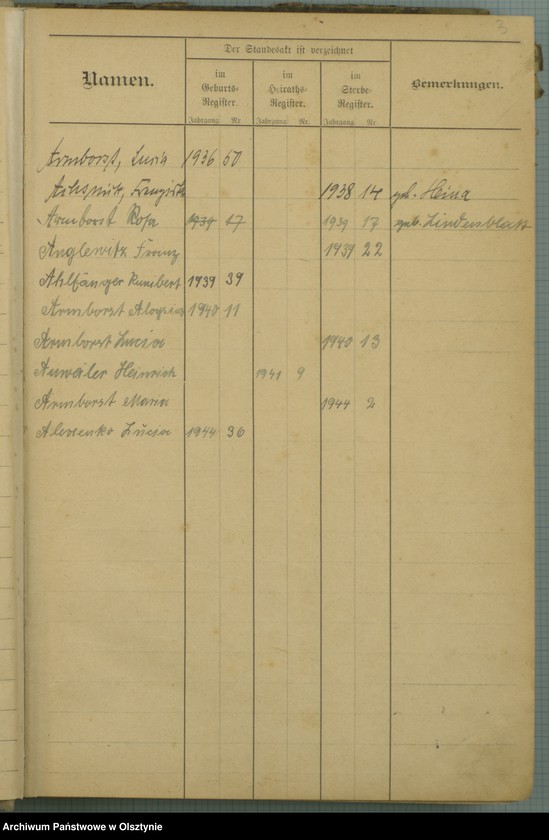 3
Namen.
Der Standesakt ist verzeichnet
im Geburts-Register.
im Heiraths-Register.
im Sterbe-Register.
Bemerkungen.
Jahrgang Nr. Jahrgang Nr. Jahrgang Nr.
Armborst, Luzia 1936 50
1938 14 geb. Heina
Armborst Rosa 1939 17 1939 17 geb. Lindenblatt
Anglewitz Franz 1939 22
Ahlfänger Kunibert 1939 39
Armborst Aloysius 1940 11
Armborst Lucia 1940 13
Anweiler Heinrich 1941 9
Armborst Maria 1944 2
Lucia 1944 36
Archiwum Państwowe w Olsztynie